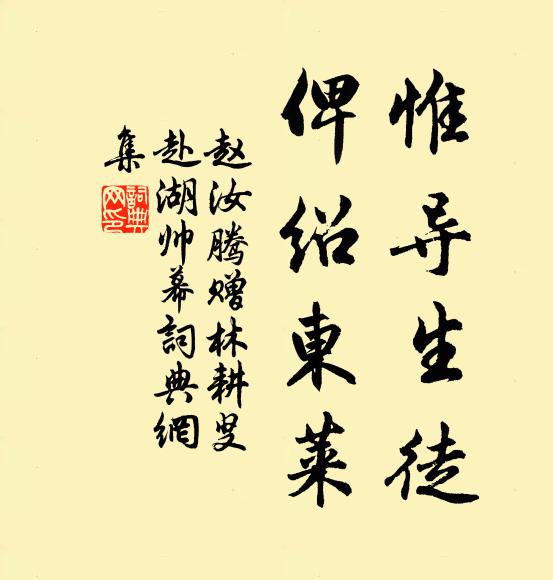 惟导生徒
俾绍東莱
赵汝腾赠林耕叟
赴湖帅幕詞典網
集
詞典
网印